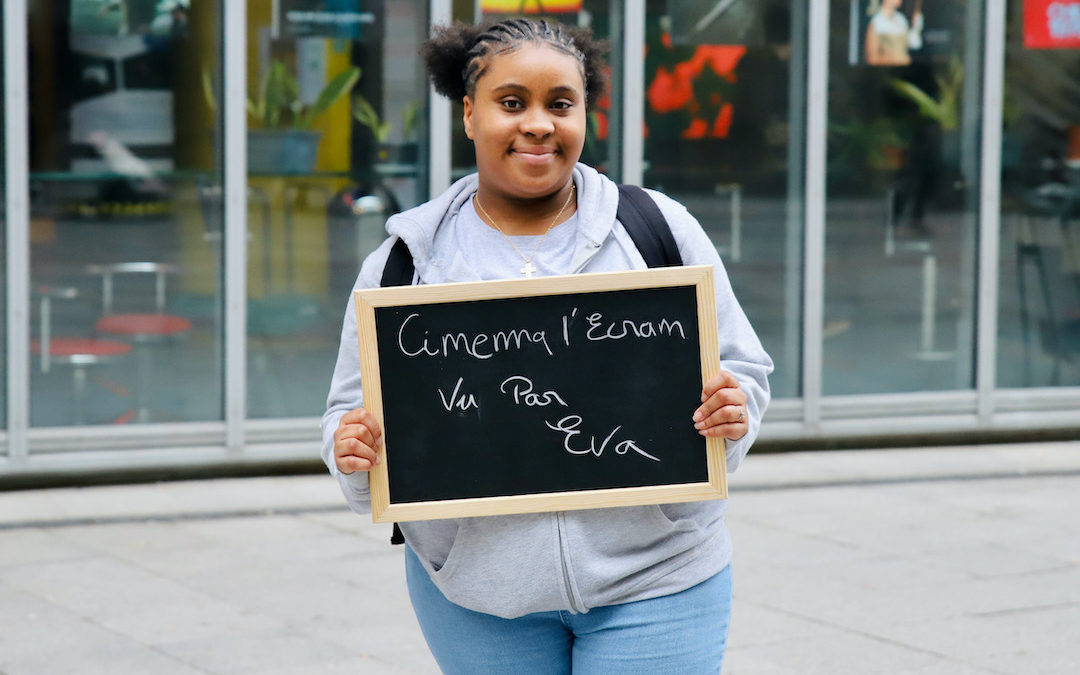 Cimemma l'Ecram
Vu Par
Eva